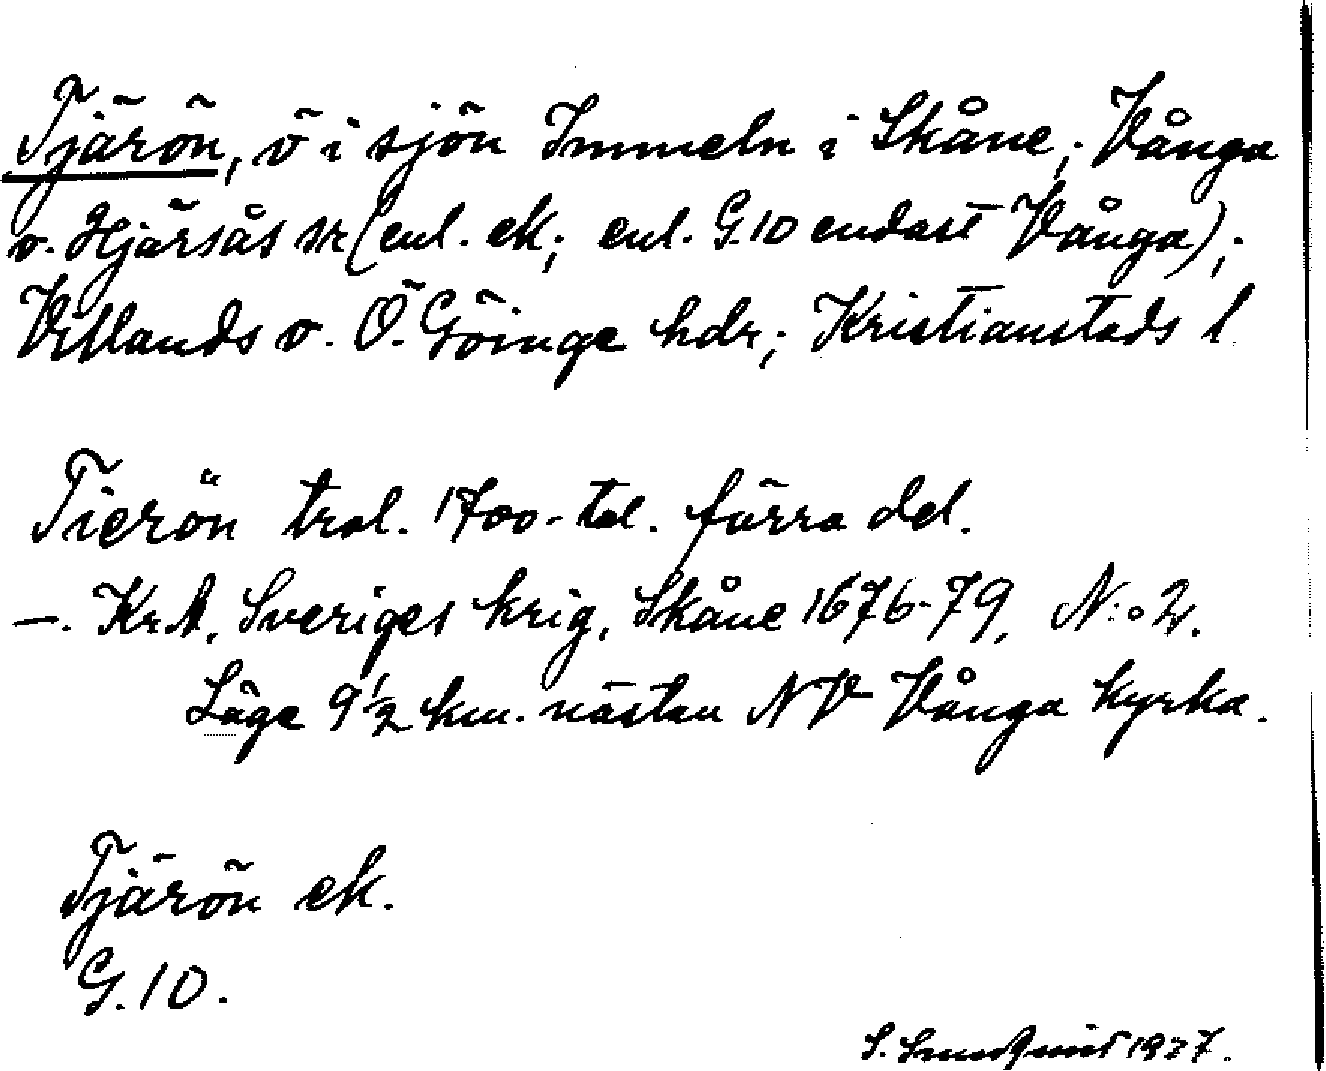 Tjärön, ö i sjön Immeln i Skåne; Vånga
o. Hjärsås sn (enl. ek; enl. G.10 endast Vånga);
Villands o. Ö. Göinge hdr; Kristianstads l
Tierön trol. 1700-tal. förra del.
—. KrA, Sveriges krig, Skåne 1676-79, N:o 2.
Läge 9½ km. nästan NV Vånga kyrka.
Tjärön ek.
G.10.
S. 1937.